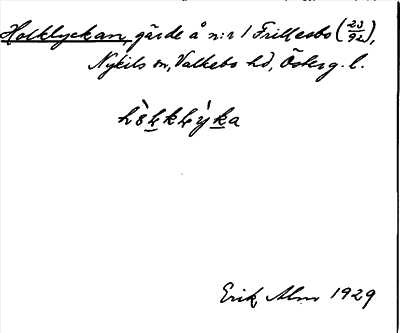 Holklyckan, gärde å n:r 1 Frillesbo (23/92),
Nykils sn, Valkebo hd, Österg. l.
Erik Alm 1929